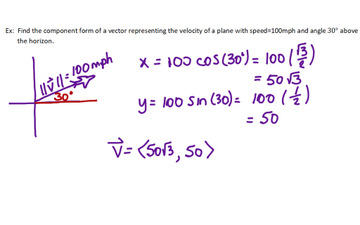 Ex: Find the component form of a vector representing the velocity of a plane with speed=100mph and angle 30° above
the horizon.
||v⃗||=100mph
30°
x = 100 cos(30°) = 100 (√3/2)
= 50√3
y = 100 sin(30) = 100 (1/2)
= 50
v⃗ = ⟨50√3, 50⟩